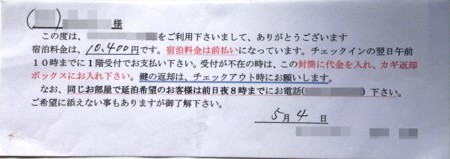 様
この度は、をご利用下さいまして、ありがとうございます
宿泊料金は、10,400円です。宿泊料金は前払いになっています。チェックインの翌日午前
10時までに1階受付でお支払い下さい。受付が不在の時は、この封筒に代金を入れ、カギ返却
ボックスにお入れ下さい。鍵の返却は、チェックアウト時にお願いします。
なお、同じお部屋で延泊希望のお客様は前日夜8時までにお電話( )下さい。
ご希望に添えない事もありますが御了解下さい。
5月4日